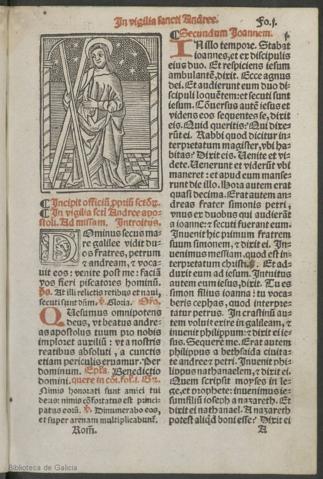 In vigilia sancti Andree. Fo.j.
¶Incipit officiũ ꝓpriũ sctõꝝ.
¶In vigilia scti Andree apo-
stoli. Ad missam. Introitus.
DOminus secus ma
re galilee vidit du-
os fratres, petrum
& andream, & voca-
uit eos: venite post me: faciã
vos fieri piscatores hominũ.
ps. At illi relictis retibus et naui,
secuti sunt dñm. ℣. Gloria. Oro.
QUesumus omnipotens
deus, vt beatus andre-
as apostolus tuum pro nobis
imploret auxiliũ: vt a nostris
reatibus absoluti, a cunctis
etiam periculis eruamur. Per
dominum. Epła. Benedictio
domini. quere in cõi. fol.j. Gr.
Nimis honorati sunt amici tui
deus: nimis cõfortatus est princi-
patus eorũ. ℣. Dinumerabo eos,
et super arenam multiplicabunt̃.
Rom̃.
¶Secundum Joannem.
IN illo tempore. Stabat
ioannes, et ex discipulis
eius duo. Et respiciens iesum
ambulantẽ, dixit. Ecce agnus
dei. Et audierunt eum duo di-
scipuli loquẽtem: et secuti sunt
iesum. Cõuersus autẽ iesus et
videns eos sequentes se, dixit
eis. Quid queritis? Qui dixe-
rũt ei. Rabbi quod dicitur in-
terpretatum magister, vbi ha-
bitas? Dixit eis. Venite et vi-
dete. Venerunt et viderũt vbi
maneret: et apud eum manse-
runt die illo. Hora autem erat
quasi decima. Erat autem an-
dreas frater simonis petri,
vnus ex duobus qui audierãt
a ioanne: et secuti fuerant eum.
Inuenit hic primum fratrem
suum simonem, & dixit ei. In-
uenimus messiam, quod est in-
terpretatum christus. Et ad-
duxit eum ad iesum. Intuitus
autem eum iesus, dixit. Tu es
simon filius ioanna: tu voca-
beris cephas, quod interpre-
tatur petrus. In crastinũ au-
tem voluit exire in galileam, &
inuenit philippum: & dixit ei ie-
sus. Sequere me. Erat autem
philippus a bethsaida ciuita-
te andree et petri. Inuenit phi-
lippus nathanaelem, & dixit ei.
Quem scripsit moyses in le-
ge, et prophete: inuenimus ie-
sum filiũ ioseph a nazareth. Et
dixit ei nathanael. A nazareth
potest aliqd boni esse? Dixit ei
A
Biblioteca de Galicia